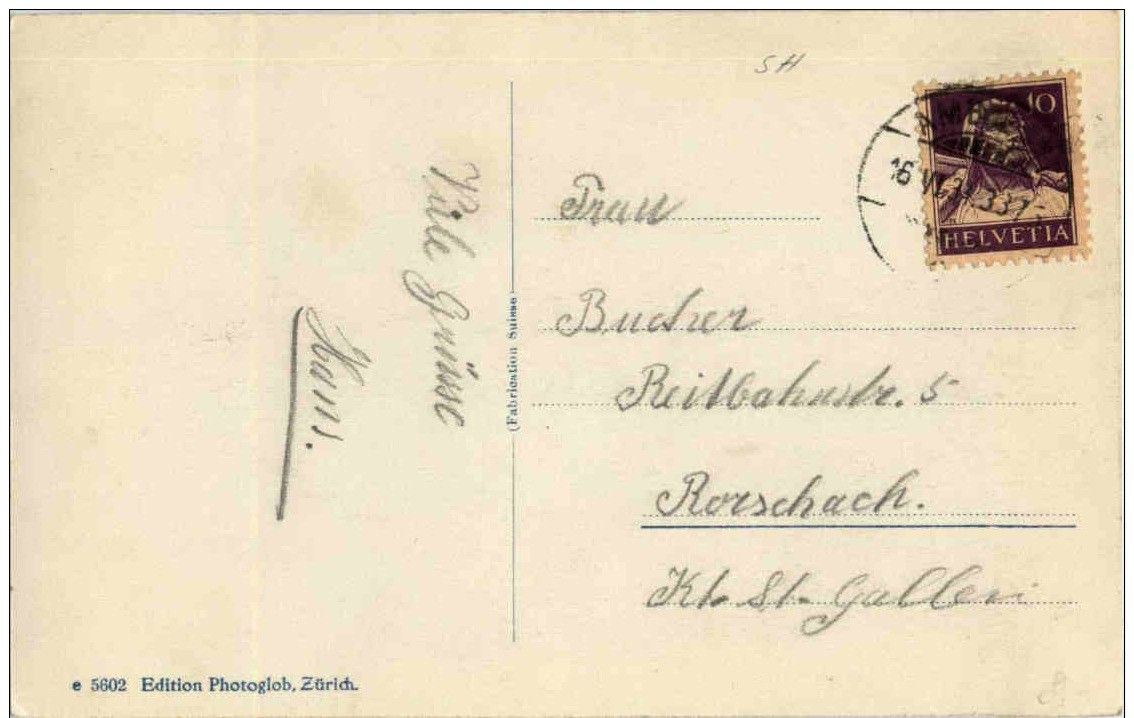 SH
10
HELVETIA
16 VI
Viele Grüsse
Hans.
(Fabrication Suisse)
Frau
Bucher
Reitbahnstr. 5
Rorschach.
Kt. St. Gallen
e 5602 Edition Photoglob, Zürich.